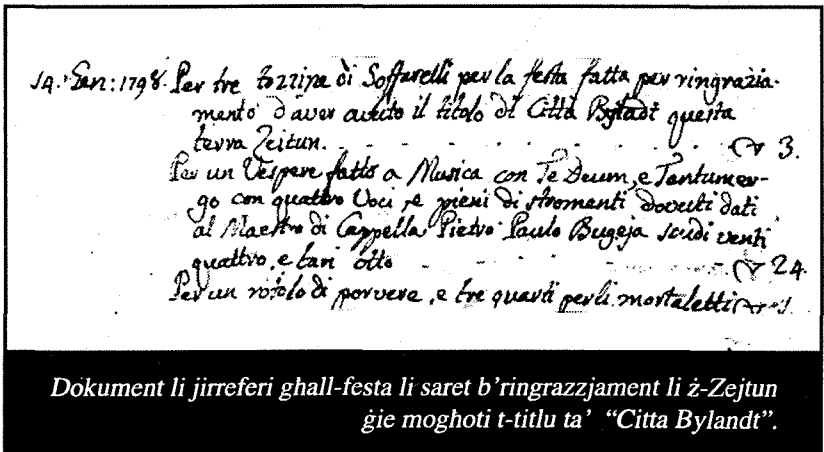 14. Gen: 1798. Per tre tozzine di Soffarelli per la festa fatta per ringrazia-
mento d'aver avuto il titolo di Città Byladt questa
terra Zeitun. - - - - - - - - - 3.
Per un Vespere fatto a Musica con Te Deum, e Tantumer-
go con quattro Voci, e pieni di stromenti dovuti dati
al Maestro di Cappella Pietro Paulo Bugeja scudi venti
quattro, e tarì otto - - - - 24.
Per un rotolo di porvere, e tre quarti per li mortaletti
Dokument li jirreferi għall-festa li saret b'ringrazzjament li ż-Zejtun
ġie mogħoti t-titlu ta' “Citta Bylandt”.